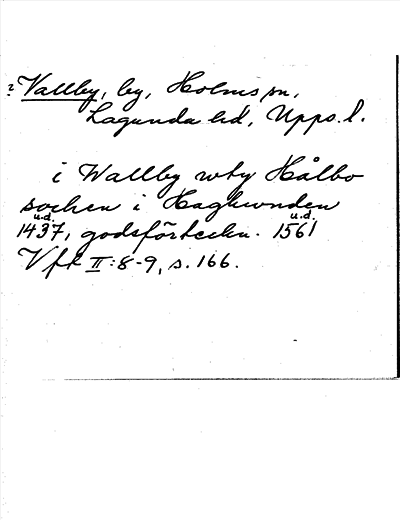 ? Vallby, by, Holms sn,
Lagunda hd, Upps. l.
i Wallby wthy Hålbo
sochen i Haghwnden
u.d. u.d.
1437, godsförteckn. 1561
Vfk II:8-9, s. 166.